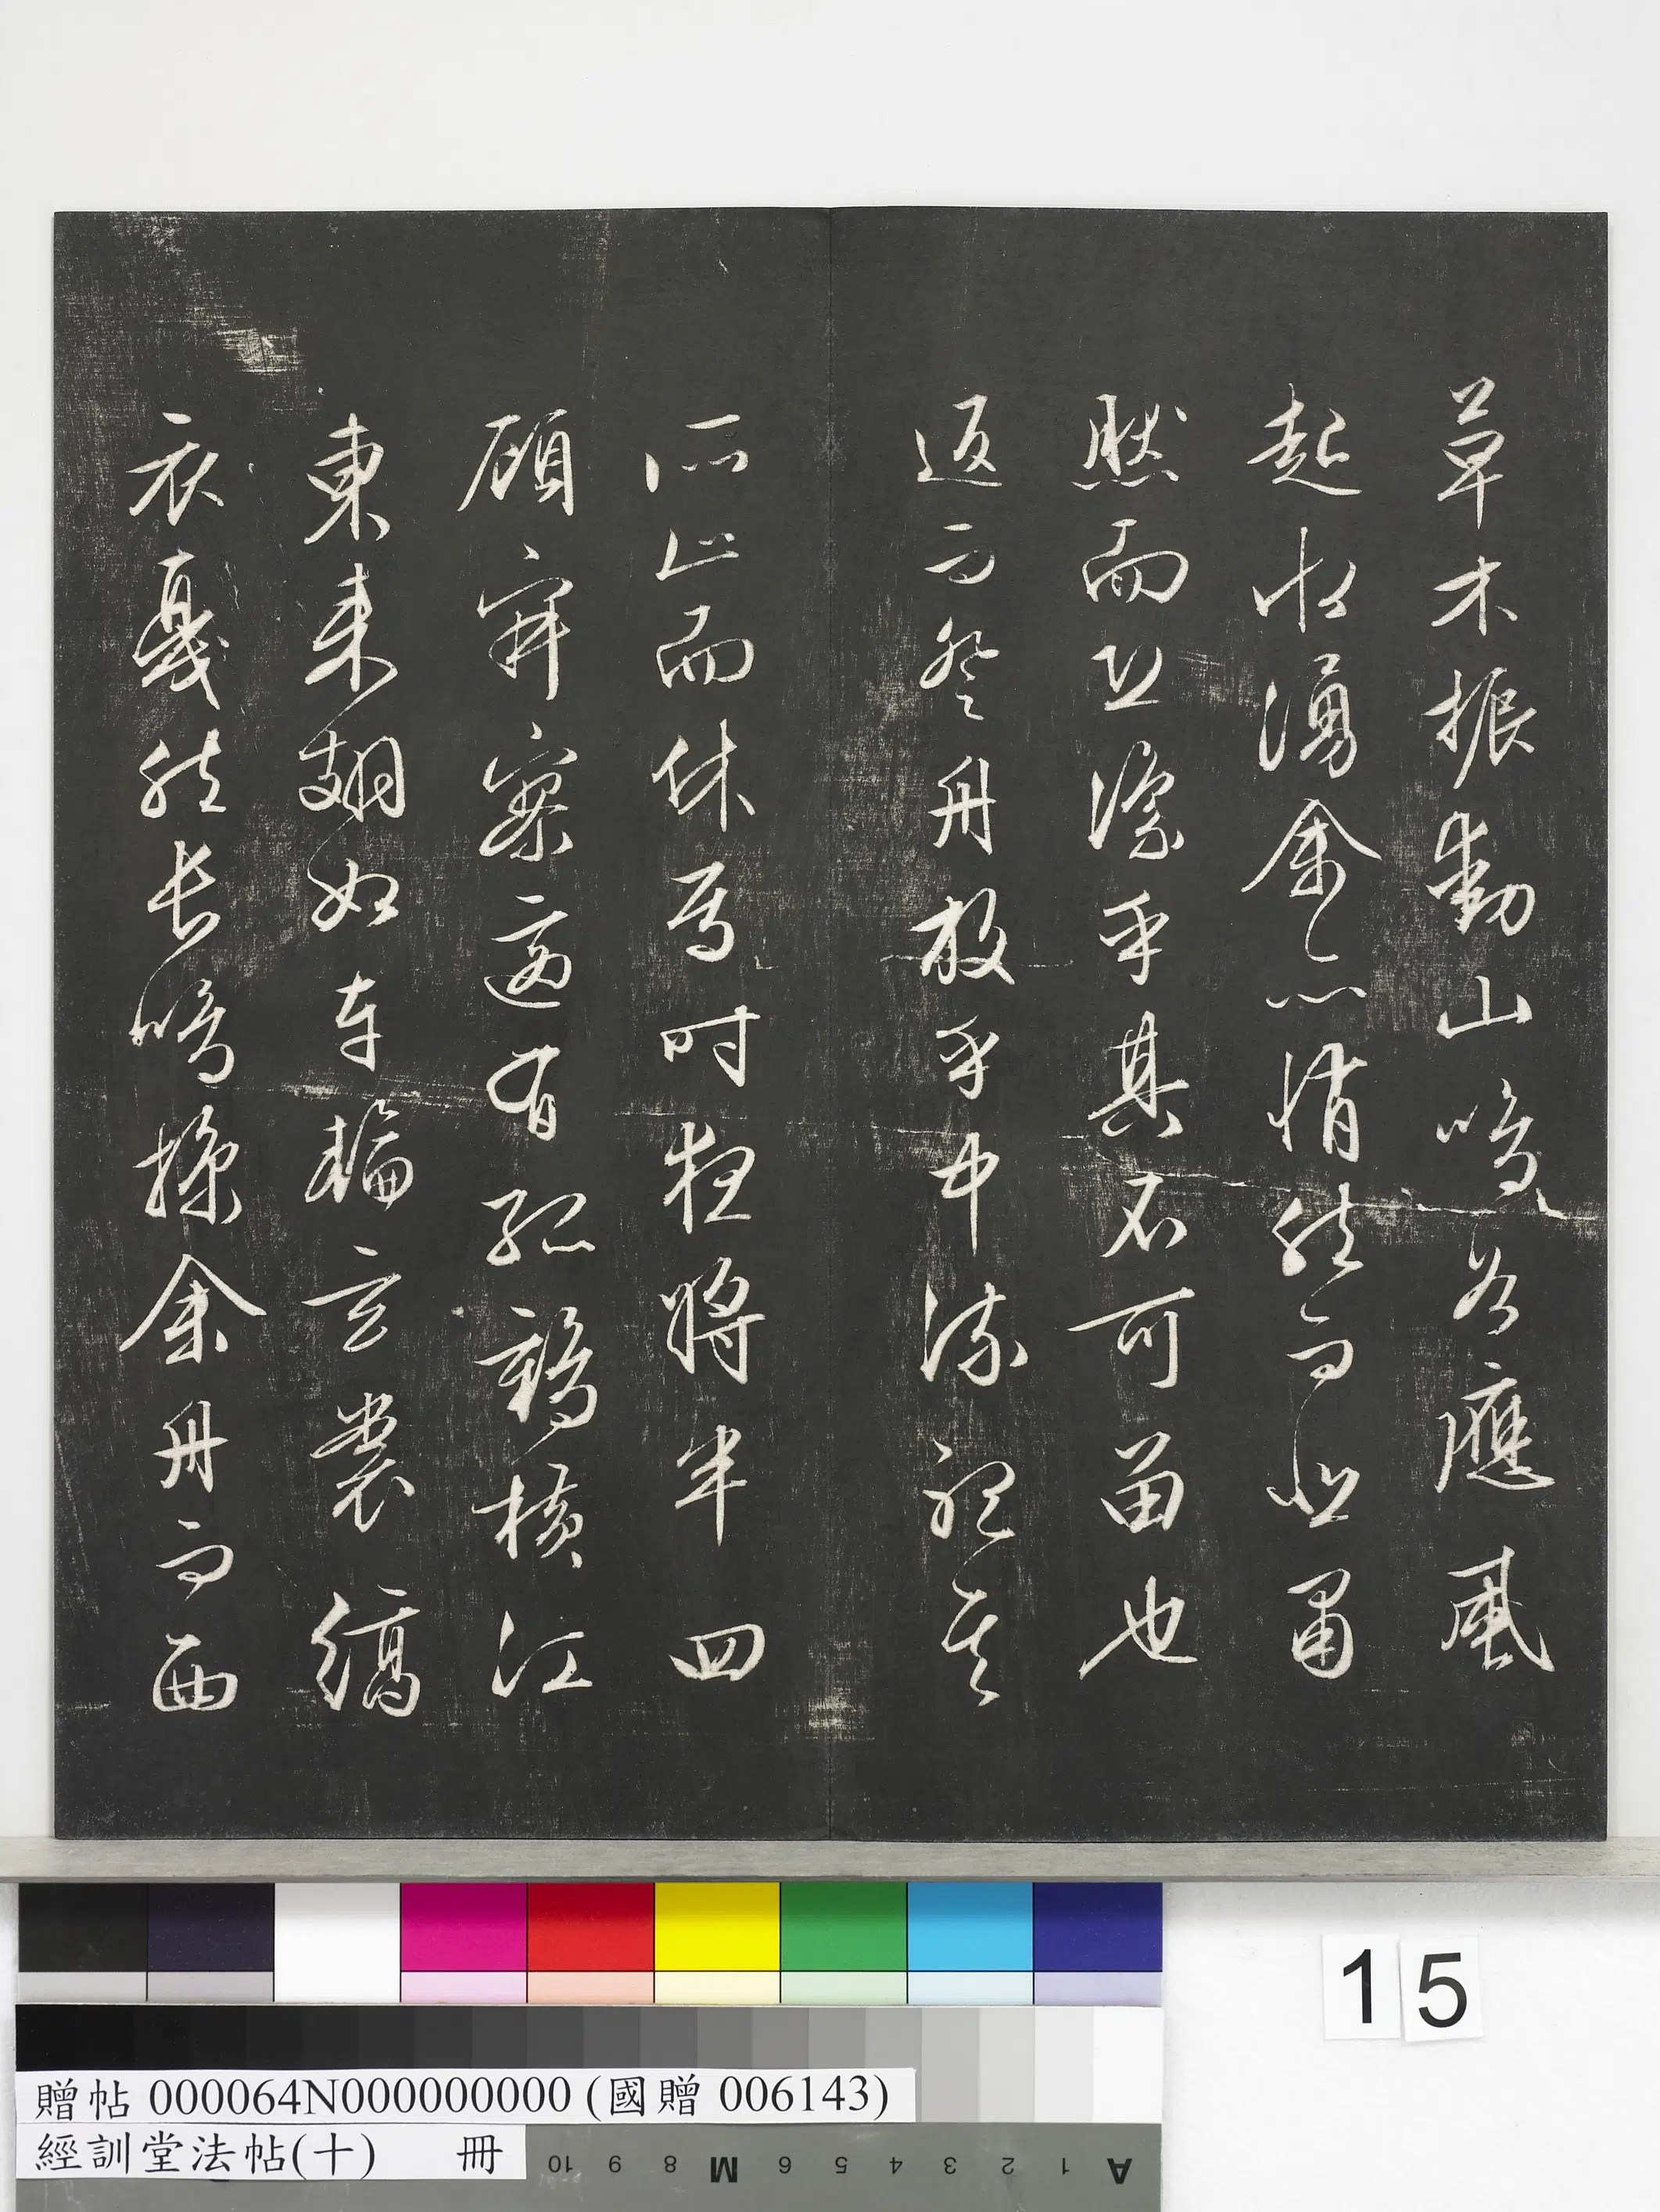 草木振動山鳴谷應風
起水湧余亦悄然而悲肅
然而恐凜乎其不可留也
返而登舟放乎中流聽其
所止而休焉時夜將半四
顧寂寥適有孤鶴橫江
東來翅如車輪玄裳縞
衣戛然長鳴掠余舟而西
15
贈帖 000064N000000000 (國贈 006143)
經訓堂法帖(十) 冊
A 1 2 3 4 5 6 M 8 9 10